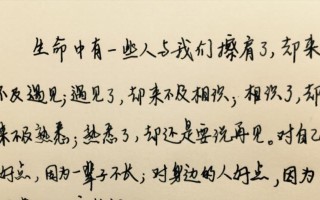 生命中有一些人与我们擦肩了,却来
不及遇见;遇见了,却来不及相识;相识了,却
来不及熟悉;熟悉了,却还是要说再见。对自己
好点,因为一辈子不长;对身边的人好点,因为